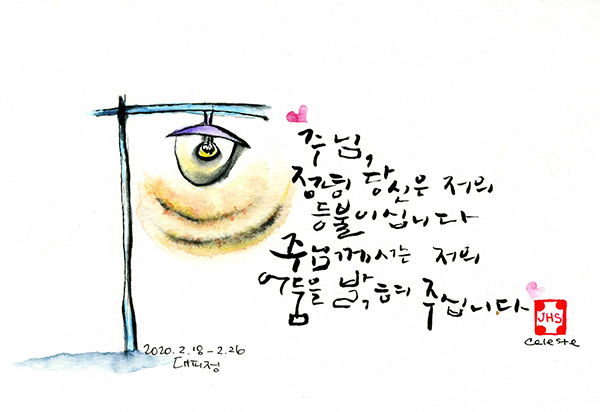 주님,
정녕 당신은 저의
등불이십니다
주님께서는 저의
어둠을 밝혀 주십니다
JHS
celeste
2020. 2. 18 - 2. 26
대피정